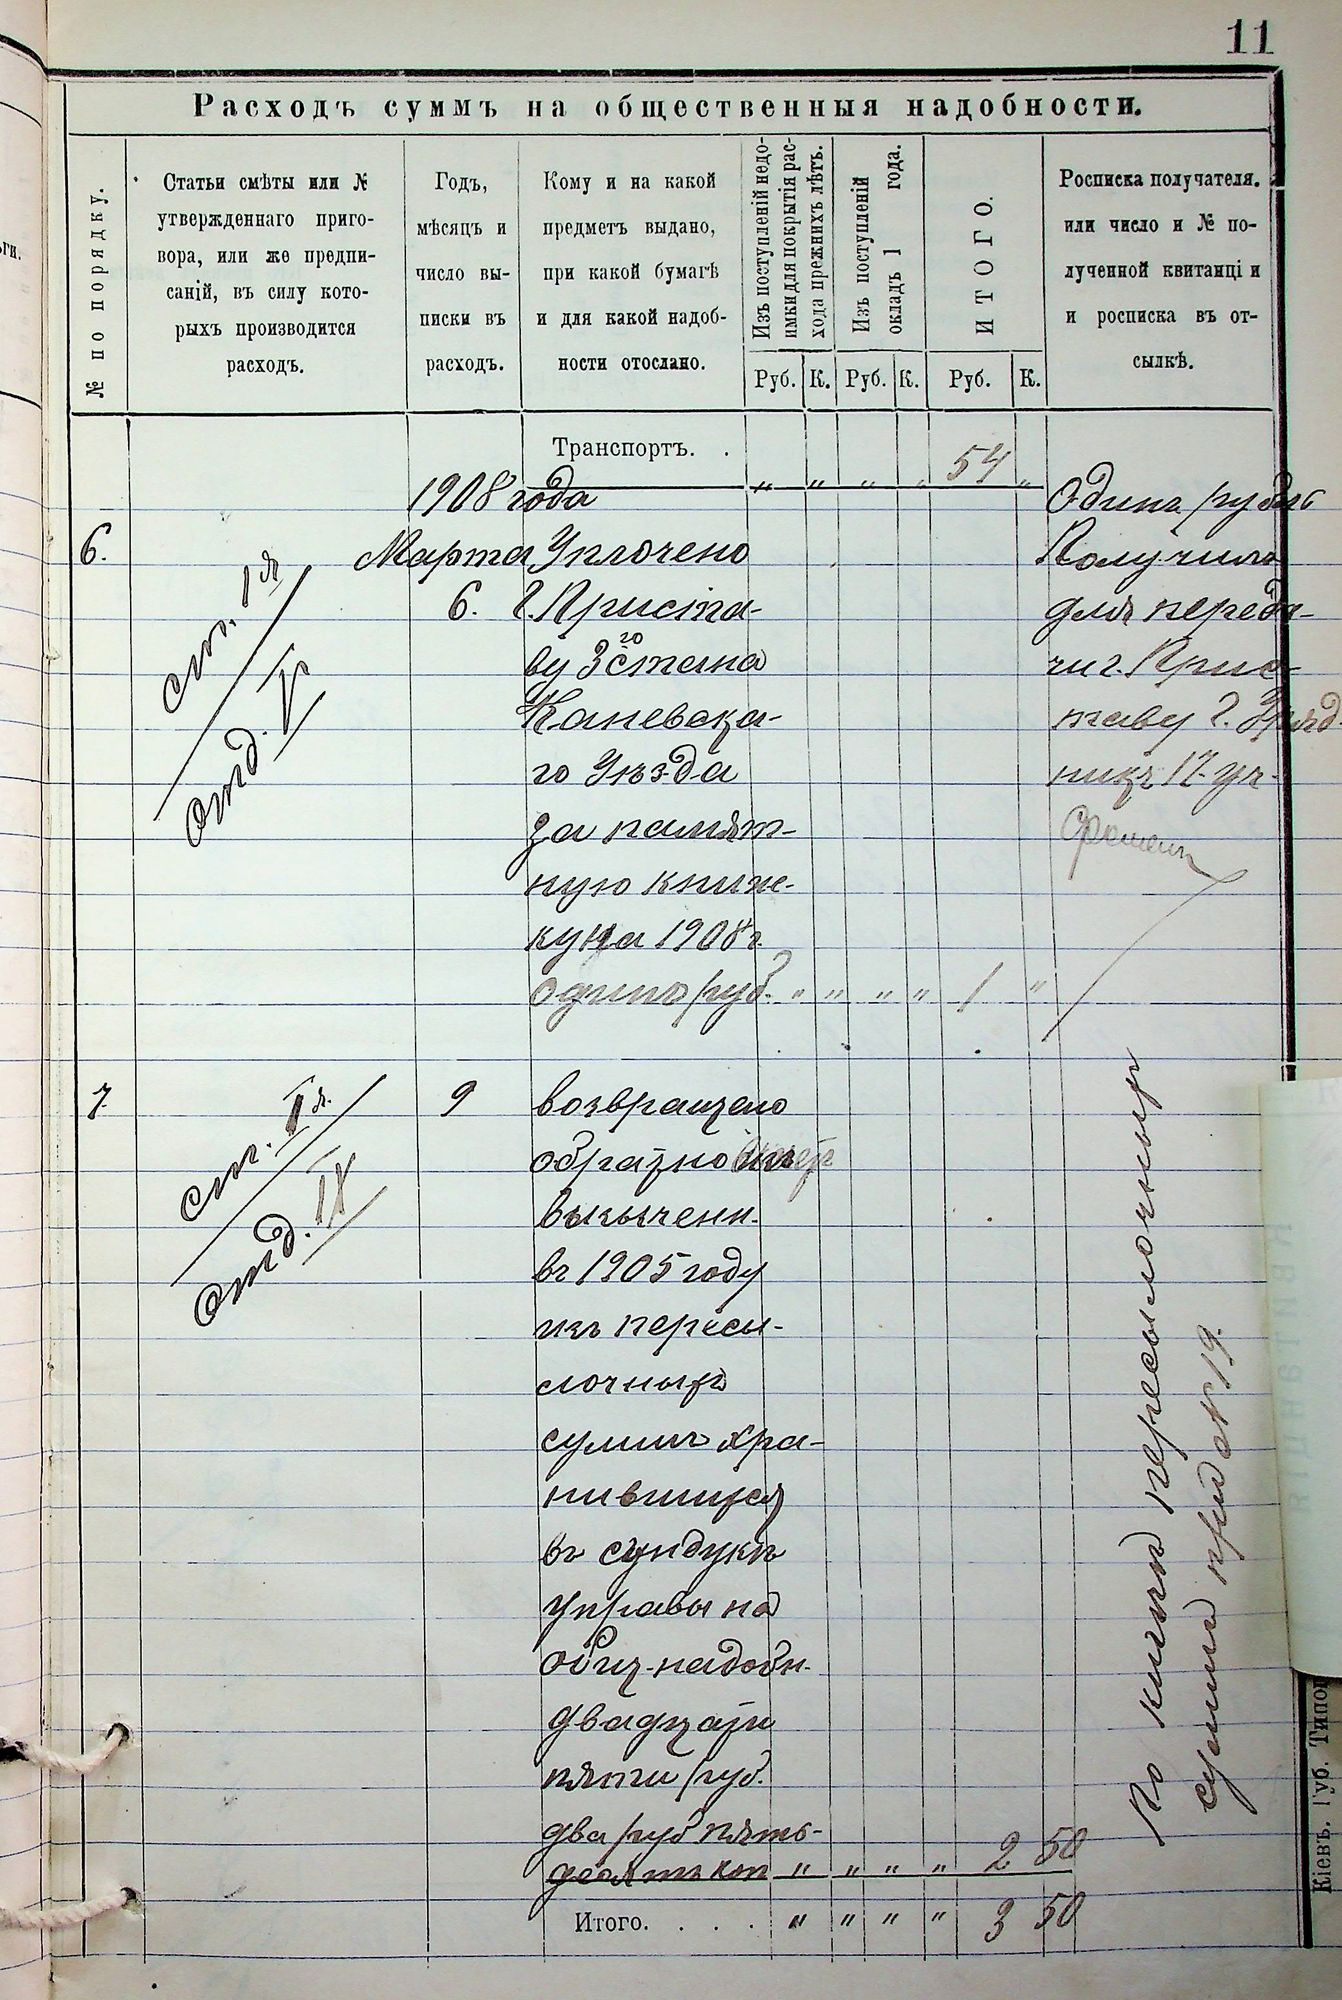 11
Расходъ суммъ на общественныя надобности.
№ по порядку.
Статьи смѣты или №
утвержденнаго приго-
вора, или же предпи-
саній, въ силу кото-
рыхъ производится
расходъ.
Годъ,
мѣсяцъ и
число вы-
писки въ
расходъ.
Кому и на какой
предметъ выдано,
при какой бумагѣ
и для какой надоб-
ности отослано.
Изъ поступленій недо-
имки для покрытія рас-
хода прежнихъ лѣтъ.
Изъ поступленій
окладъ 1 года.
ИТОГО.
Росписка получателя.
или число и № по-
лученной квитанці и
и росписка въ от-
сылкѣ.
Руб. К. Руб. К. Руб. К.
Транспортъ. . „ „ „ „ 54 „
1908 года
6.
ст. 1я
отд. V
Марта
6.
Уплочено
г. Приста-
ву 3го стана
Каневска-
го Уѣзда
за памят-
ную книж-
ку на 1908 г.
одинъ руб. „ „ „ „ 1 „
Одинъ рубль
Получилъ
для переда-
чи г. Прис-
таву г. Уряд-
никъ 17 уч.
7.
ст. I я.
отд. IX
9
возвращено
обратно
в 1905 году
изъ переси-
лочныхъ
суммъ хра-
нившихся
въ сундукѣ
управы на
общ. надобн.
двадцати
пяти руб.
два руб пять-
десятъ коп „ „ „ „ 2 50
Итого. . . . „ „ „ „ 3 50
По книгѣ пересылочныхъ
суммъ приход № 19.
Кіевъ. Губ. Типог